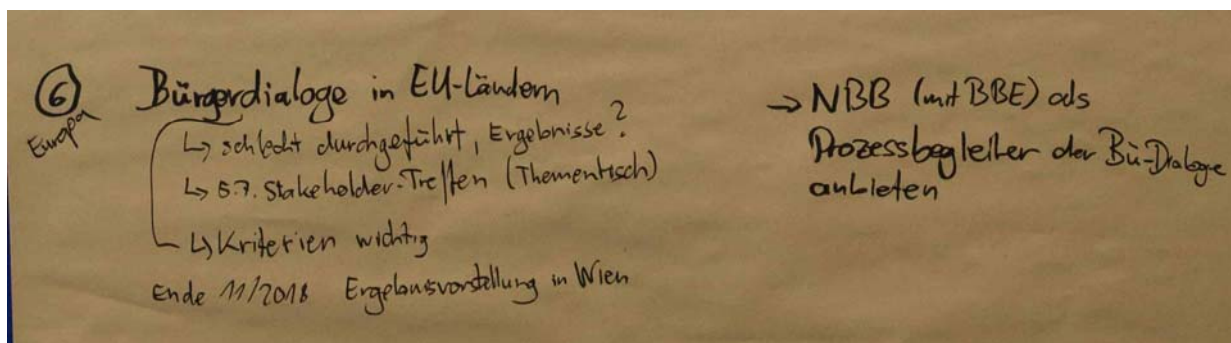 6 Bürgerdialoge in EU-Ländern
Europa
↳ schlecht durchgeführt, Ergebnisse?
↳ 5.7. Stakeholder-Treffen (Thementisch)
↳ Kriterien wichtig
Ende 11/2018 Ergebnisvorstellung in Wien
→ NBB (mit BBE) als
Prozessbegleiter der Bü-Dialoge
anbieten